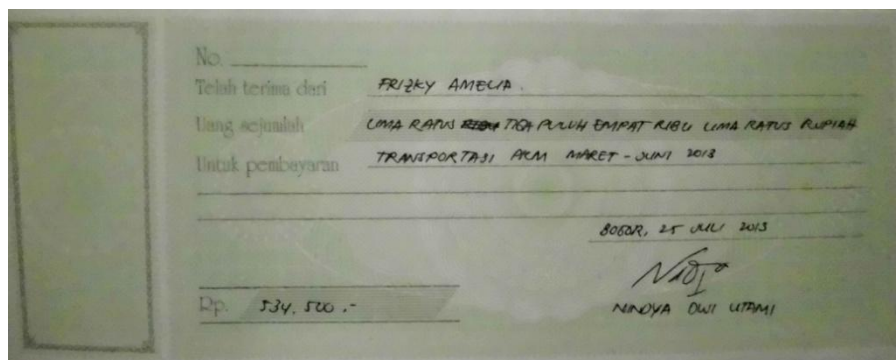 No.
Telah terima dari FRIZKY AMELIA.
Uang sejumlah LIMA RATUS TIGA PULUH EMPAT RIBU LIMA RATUS RUPIAH
Untuk pembayaran TRANSPORTASI PKM MARET - JUNI 2013
BOGOR, 25 JULI 2013
Rp. 534.500.-
NINDYA DWI UTAMI